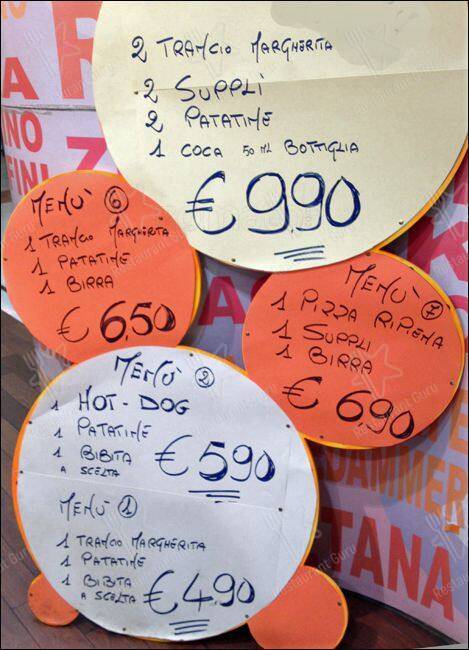 2 TRANCIO MARGHERITA
2 SUPPLÌ
2 PATATINE
1 COCA 50 ML BOTTIGLIA
€ 9.90
MENÙ 6
1 TRANCIO MARGHERITA
1 PATATINE
1 BIRRA
€ 6.50
MENÙ 7
1 PIZZA RIPIENA
1 SUPPLI
1 BIRRA
€ 6.90
MENÙ 2
1 HOT-DOG
1 PATATINE
1 BIBITA
A SCELTA
€ 5.90
MENÙ 1
1 TRANCIO MARGHERITA
1 PATATINE
1 BIBITA
A SCELTA
€ 4.90
TANA
Restaurant Guru